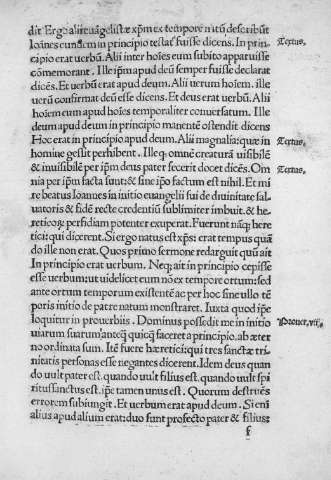 dit. Ergo alii euãgelistæ xp̃m ex tempore nìtũ describũt
Ioãnes eundem in principio testat fuisse dicens. In prin-
cipio erat uerbũ. Alii inter hoĩes eum subito apparuisse
cõmemorant. Ille ip̃m apud deũ semper fuisse declarat
dicẽs. Et uerbũ erat apud deum. Alii uerum hoĩem. ille
uerũ confirmat deũ esse dicens. Et deus erat uerbũ. Alii
hoĩem cum apud hoĩes temporaliter conuersatum. Ille
deum apud deum in principio manentẽ ostendit dicens
Hoc erat in principio apud deum. Alii magnalia: quæ in
homine gessit perhibent. Ille q̨ omnẽ creaturã uisibilẽ
& inuisibilẽ per ip̃m deus pater fecerit docet dicẽs. Om
nia per ip̃m facta sunt: & sine ip̃o factum est nihil. Et mi
re beatus Ioannes in initio euangelii sui de diuinitate sal-
uatoris & fidẽ recte credentiũ sublimiter imbuit. & he-
reticoꝝ perfidiam potenter exuperat. Fuerunt nãq; here
tici: qui dicerent. Si ergo natus est xp̃s: erat tempus quã
do ille non erat. Quos primo sermone redarguit quũ ait
In principio erat uerbum. Neq; ait in principio cepisse
esse uerbum: ut uidelicet eum nõ ex tempore ortum: sed
ante ortum temporum existentẽ ac per hoc sine ullo tẽ
poris initio de patre natum monstraret. Iuxta quod ip̃e
loquitur in prouerbiis. Dominus possedit me in initio
uiarum suarum: anteq̃ quicq̃ faceret a principio. ab æter
no ordinata sum. Itẽ fuere hæretici: qui tres sanctæ tri-
nitatis personas esse negantes dicerent. Idem deus quan
do uult pater est. quando uult filius est. quando uult spi
ritus sanctus est. ip̃e tamen unus est. Quorum destruẽs
errorem subiungit. Et uerbum erat apud deum. Si enĩ
alius apud alium erat: duo sunt profecto pater & filius:
f
Textus.
Textus.
Textus.
Prouer. viij.